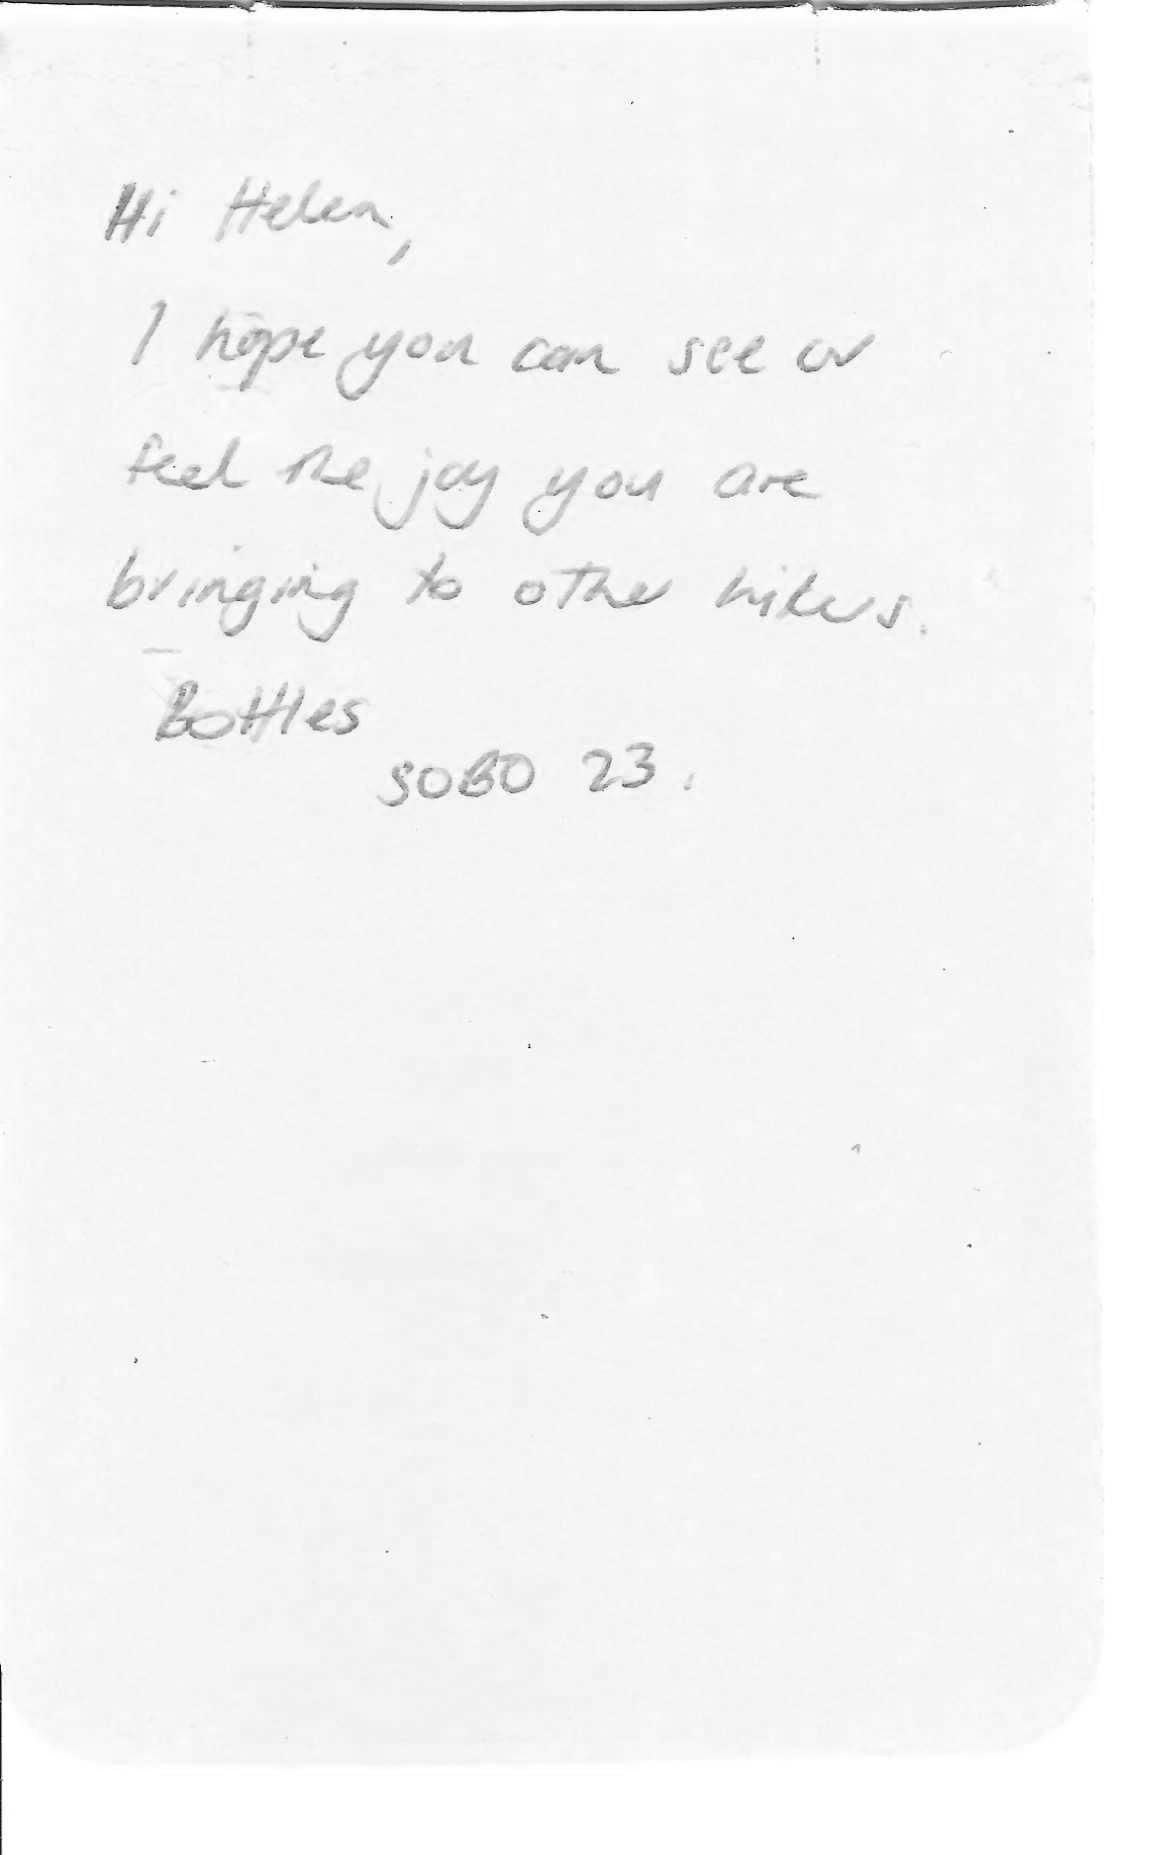 Hi Helen,
I hope you can see or
feel the joy you are
bringing to other hikers.
Bottles
SOBO 23.